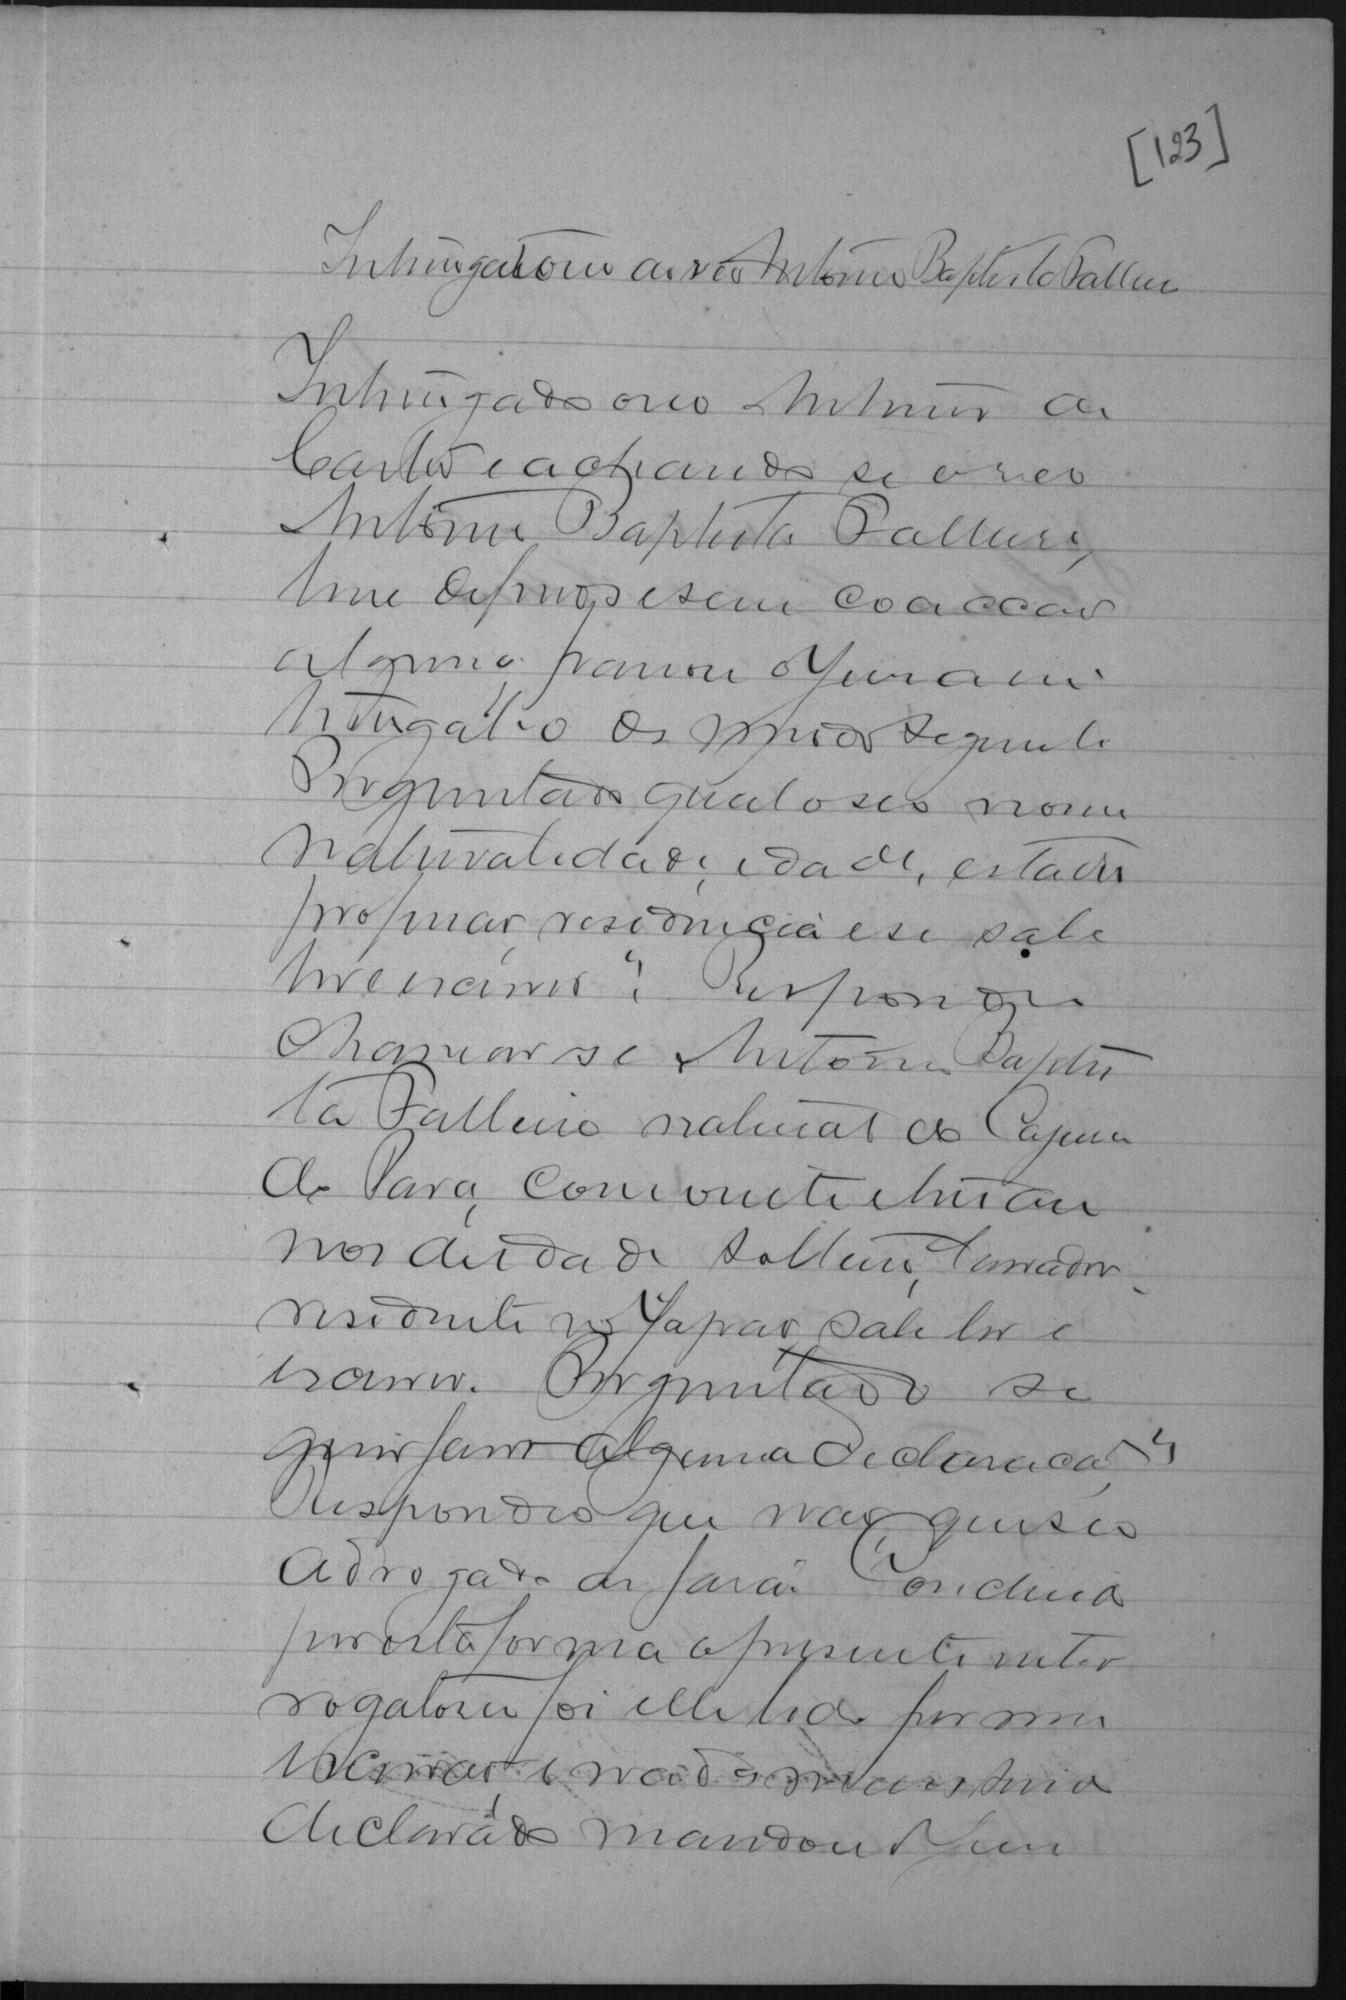 [123]
Interrogatorio ao reo Antonio Baptista Palleu
Interrogado o reo Antonio de
Castro e achando se o reo
Antonio Baptista Palleu,
livre de ferros e sem coacção
alguma, passou o Juiz a in
terrogal-o do modo seguinte
Perguntado qual o seo nome
naturalidade, edade, estado
profissão, residencia e se sabe
ler e escrever? Respondeu
chamar se Antonio Baptis
ta Palleu natural do
do Pará, com vinte e
nos de edade solteiro, lavrador
residente no Yapão, sabe ler e
escrever. Perguntado se
quer fazer alguma declaração?
Respondeo que não, que seo
advogado o fará. Concluido
por esta forma o presente inter
rogatorio foi elle lido por mim
escrivão e nada mais sendo
declarado mandou o Juiz